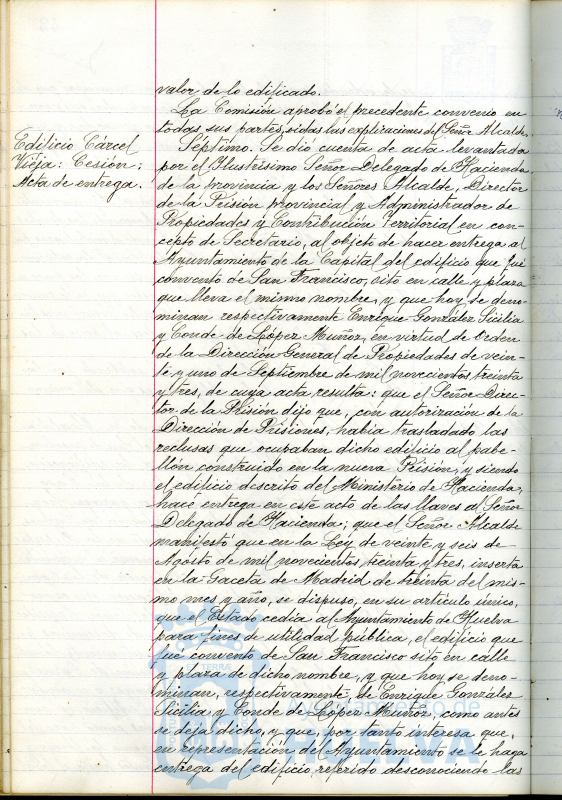 valor de lo edificado.
La Comisión aprobó el precedente convenio en
todas sus partes, oidas las explicaciones del Señor Alcalde.
Edificio Cárcel
Vieja: Cesión:
Acta de entrega.
Séptimo. Se dió cuenta de acta levantada
por el Ilustrísimo Señor Delegado de Hacienda
de la provincia y los Señores Alcalde, Director
de la Prisión provincial y Administrador de
Propiedades y Contribución Territorial en con-
cepto de Secretario, al objeto de hacer entrega al
Ayuntamiento de la Capital del edificio que fué
convento de San Francisco, sito en calle y plaza
que lleva el mismo nombre, y que hoy se deno-
minan respectivamente Enrique González Sicilia
y Conde de López Muñoz, en virtud de Orden
de la Dirección General de Propiedades de vein-
te y uno de Septiembre de mil novecientos treinta
y tres, de cuya acta resulta: que el Señor Direc-
tor de la Prisión dijo que, con autorización de la
Dirección de Prisiones, habia trasladado las
reclusas que ocupaban dicho edificio al pabe-
llón construido en la nueva Prisión, y siendo
el edificio descrito del Ministerio de Hacienda,
hace entrega en este acto de las llaves al Señor
Delegado de Hacienda; que el Señor Alcalde
manifestó que en la Ley de veinte y seis de
Agosto de mil novecientos treinta y tres, inserta
en la Gaceta de Madrid de treinta del mis-
mo mes y año, se dispuso, en su artículo único,
que el Estado cedia al Ayuntamiento de Huelva
para fines de utilidad pública, el edificio que
fué convento de San Francisco sito en calle
y plaza de dicho nombre, y que hoy se deno-
minan, respectivamente, de Enrique González
Sicilia y Conde de López Muñoz, como antes
se deja dicho, y que, por tanto interesa que,
en representación del Ayuntamiento se le haga
entrega del edificio referido desconociendo las
Ayuntamiento de